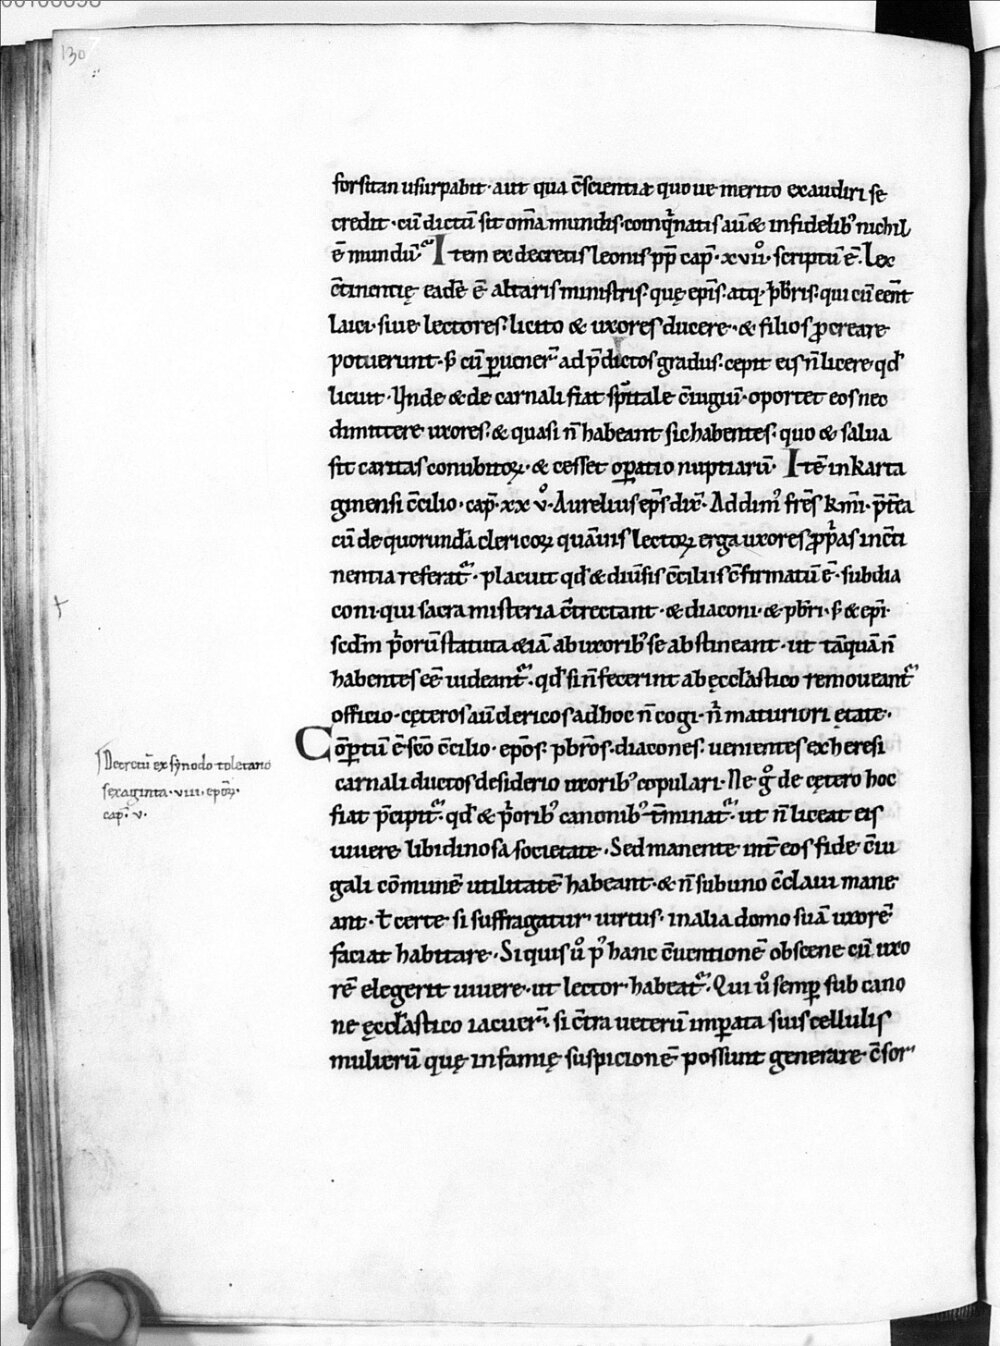 130
forsitan usurpabit· aut qua c̄scientia quo ue merito exaudiri se
credit· cū dictū sit om̄a mundis· coinq̇natis aū & infidelib᷒ nichil
ē mundū· Item ex decretis leonis pp̄ cap̄· xvıı̊· scriptū ē· Lex
c̄tinentię eadē ē altaris ministris· quę ep̄is· atq· p̄b̄ris· qui cū eēnt
laici· siue lectores· licito & uxores ducere· & filios ꝓcreare
potuerunt· s; cū ꝑuener̄ ad p̄dictos gradus· cepit eis n̄ licere qđ
licuit· Unde & de carnali fiat sp̄itale c̄iugiū· oportet eos nec
dimittere uxores· & quasi n̄ habeant sic habentes· quo & salua
sit caritas conubioꝝ· & cesset oꝑatio nuptiarū· Itē in karta
ginensi c̄cilio· cap̄· xx v̊· Aurelius ep̄s dix̄· Addim᷒ fr̄s km̄i· p̄t̄ea
cū de quorundā clericoꝝ quāuis lectoꝝ erga uxores ꝓṗas inc̄ti
nentia referat̄· placuit qđ & diu̅sis c̄ciliis c̄firmatū ē· subdia
coni· qui sacra misteria c̄trectant· & diaconi· & pb̄ri· s; & ep̄i·
sc̄dm ṗorū statuta &iā ab uxorib᷒ se abstineant· ut tāquā n̄
habentes eē uideant̄· qđ si n̄ fecerint ab ęccl̄astico remoueant̄
officio· cęteros aū clericos ad hoc n̄ cogi· n̄ maturiori ętate·
Coꝑtū ē sc̄o c̄cilio· ep̄os· pb̄ros· diacones· uenientes ex heresi
carnali ductos desiderio uxorib᷒ copulari· Ne g̊ de cętero hoc
fiat p̄cipit̄· qđ & ṗorib᷒ canonib᷒ t̄minat̄· ut n̄ liceat eis
uiuere libidinosa societate· Sed manente int̄ eos fide c̄iu
gali cōmunē utilitatē habeant· & n̄ sub uno c̄claui mane
ant· ł certe si suffragatur uirtus· in alia domo suā uxorē
faciat habitare· Si quis ů p᷒ hanc c̄uentionē obscene cū uxo
rē elegerit uiuere· ut lector habeat̄· Qui ů semꝑ sub cano
ne ęccl̄astico iacuer̄· si c̄tra ueterū imꝑata suis cellulis
mulierū quę infamię suspicionē possunt generare c̄sor
Decretū ex synodo toletano
sexaginta· viii· ep̄oꝝ·
cap̄· v·